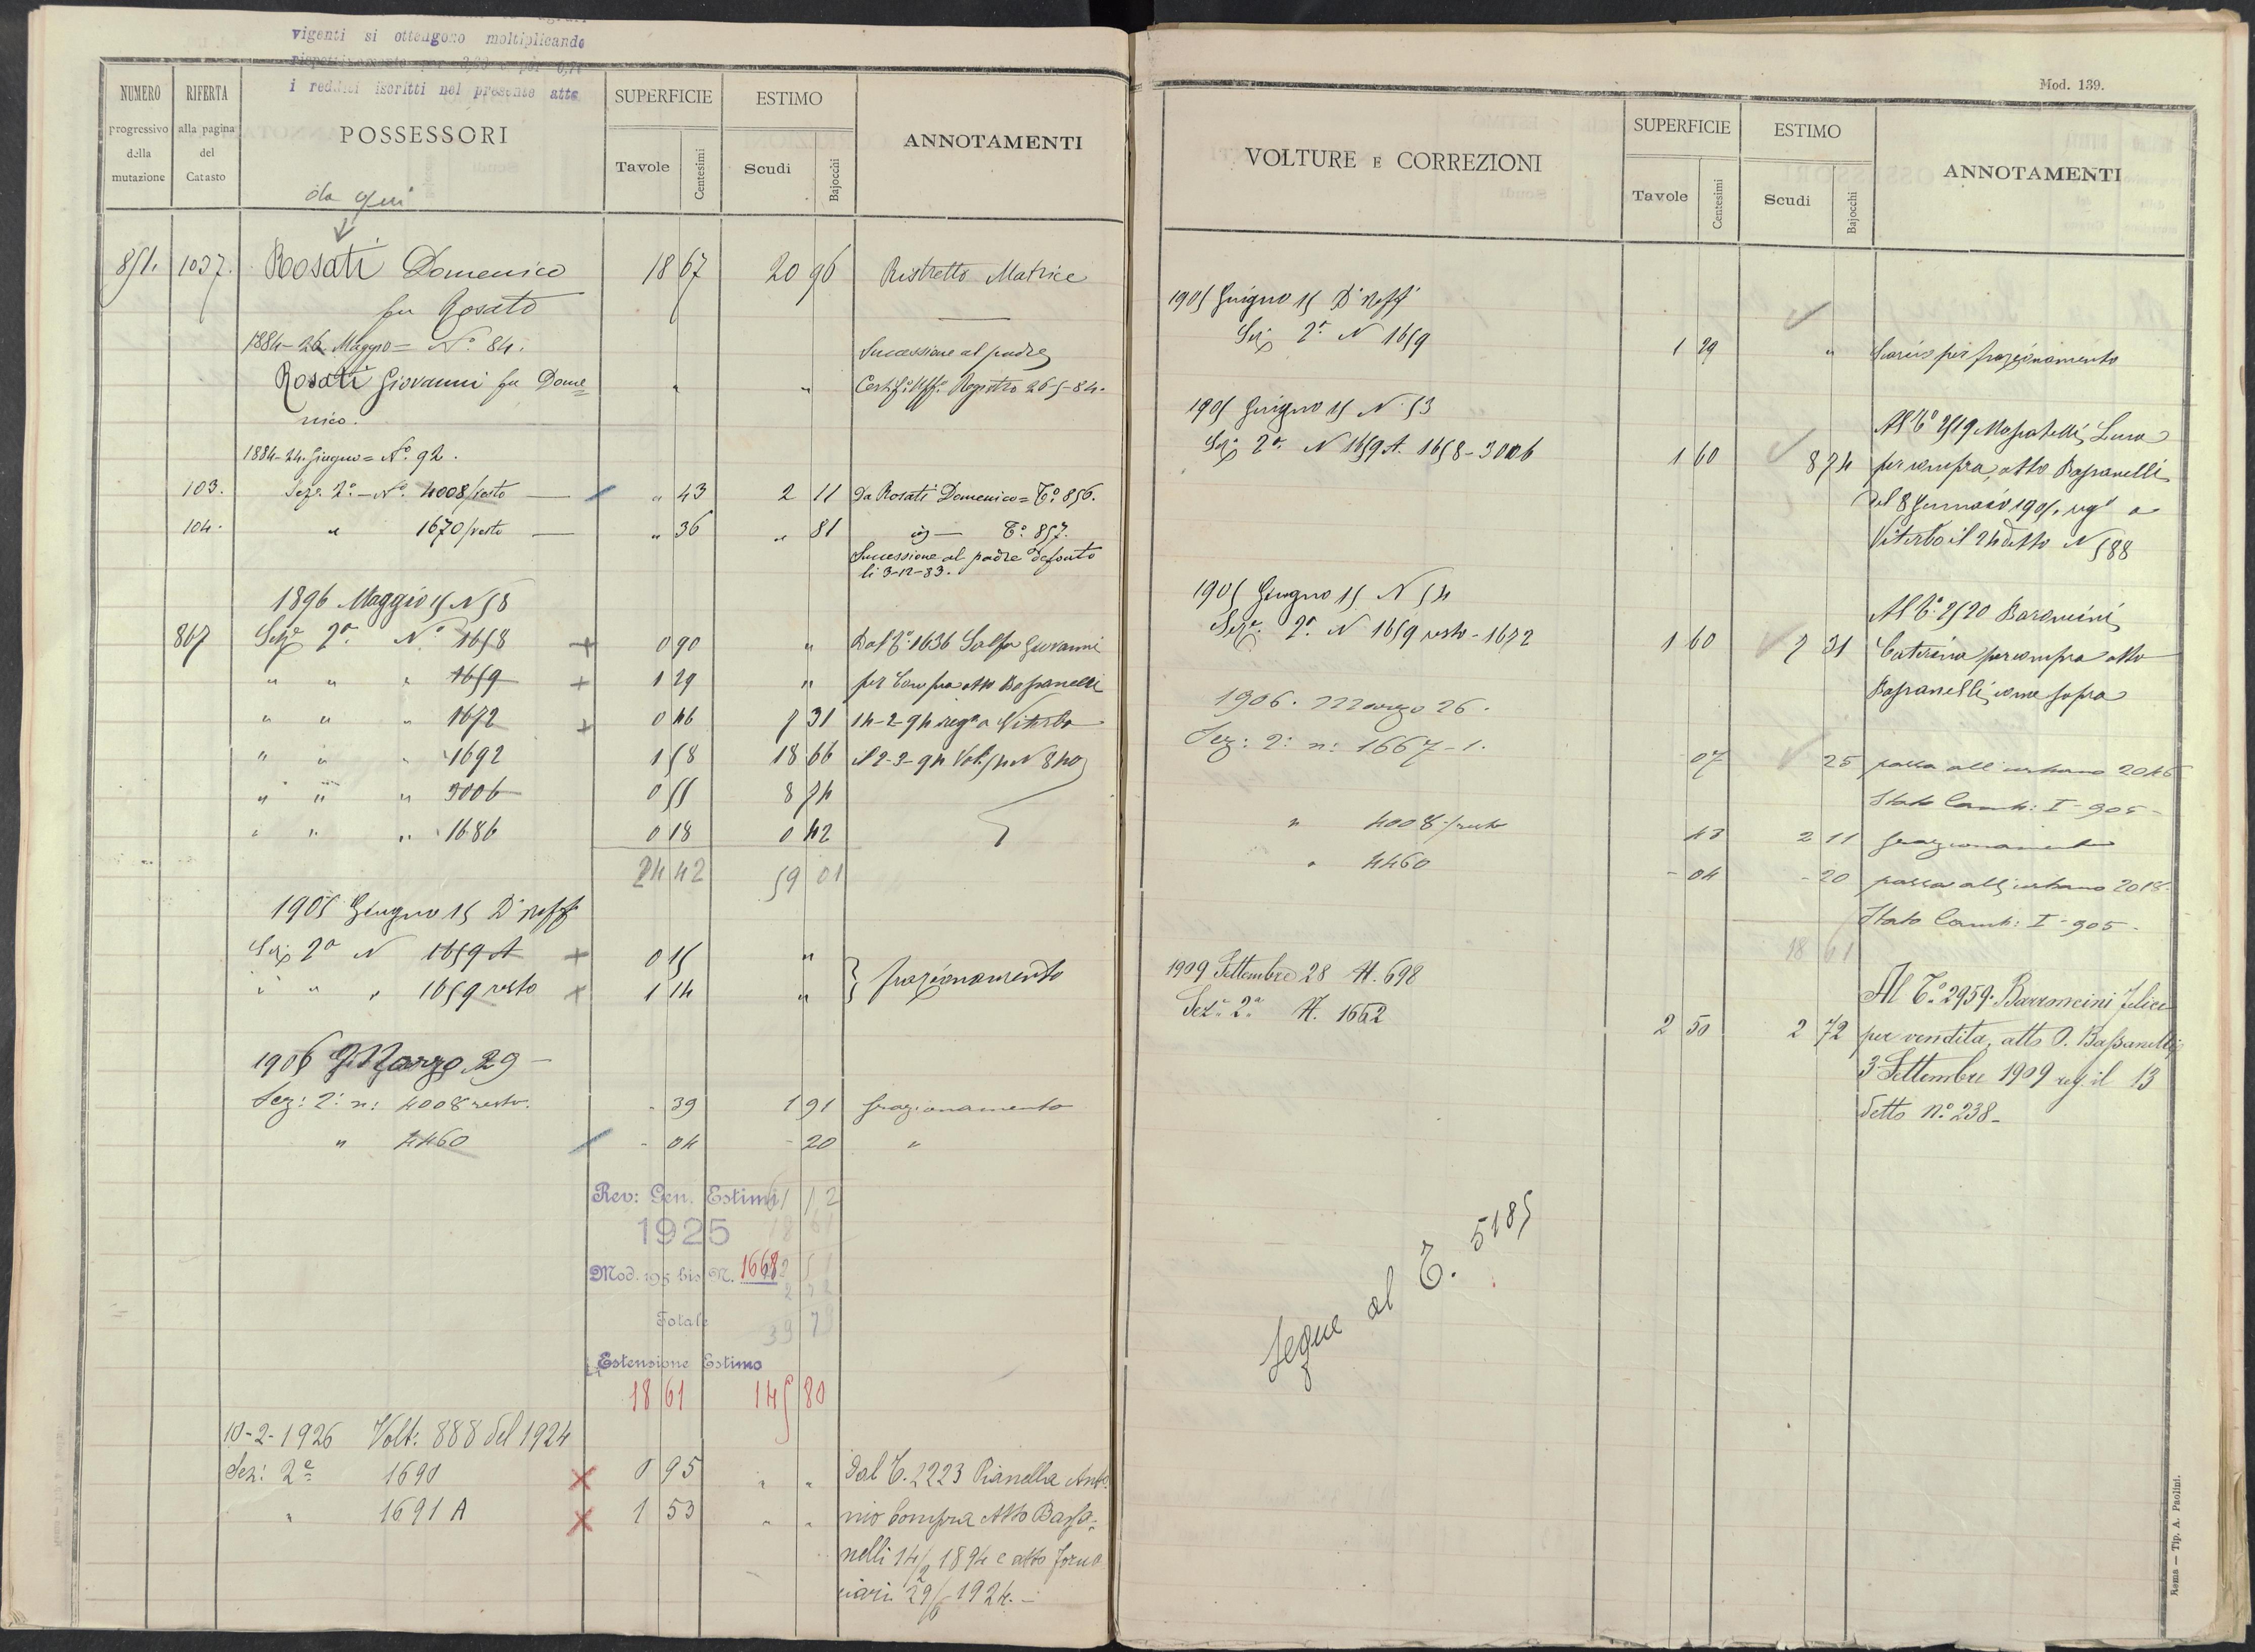 vigenti si ottengono moltiplicando
rispettivamente per
i redditi iscritti nel presente atto
NUMERO
progressivo
della
mutazione
RIFERTA
alla pagina
del
Catasto
POSSESSORI
da qui
SUPERFICIE
Tavole
Centesimi
ESTIMO
Scudi
Bajocchi
ANNOTAMENTI
851. 1037. Rosati Domenico 18 67 20 96 Ristretto Matrice
fu Rosato
1884-26 Maggio = N.o 84. Successione al padre
Rosati Giovanni fu Dome " " Certif.o Uff.o Registro 26-5-84.
nico.
1884-24 Giugno = N.o 92.
103. Sez.e 2.a - N.o 4008/resto " 43 2 11 Da Rosati Domenico = T.o 856.
104. " 1670/resto " 36 " 81 id — T.o 857.
Successione al padre defonto
li 3-12-83.
1896 Maggio 15 N 58
867 Sez.e 2.a N.o 1658 + 0 90 " Dal T.o 1636 Salfa Giovanni
" " " 1659 + 1 29 " per Compra atto Bassanelli
" " " 1672 + 0 46 7 31 14-2-94 reg.o a Viterbo
" " " 1692 1 58 18 66 il 2-3-94 Vol. 54 N 840
" " " 3006 0 55 8 74
" " " 1686 0 18 0 42
24 42 59 01
1905 Giugno 15 D'Uff.
Sez 2a N 1659 A + 0 15 "
" " " 1659 resto + 1 14 " } frazionamento
1906 Marzo 29 -
Sez: 2: n: 4008 resto. - 39 1 91 frazionamento
" 4460 - 04 - 20 "
Rev: Gen. Estimi 61 12
1925 18 61
Mod. 195 bis N. 1668
Totale 39 79
Estensione Estimo
18 61 145 80
10-2-1926 Volt: 888 del 1924
Sez: 2e 1690 × 0 95 " " Dal T. 2223 Pianella Anto
" 1691 A × 1 53 " " nio Compra Atto Bassa-
nelli 14/2 1894 e atto Forna
ciari 29/6 1924. -
Mod. 139.
VOLTURE E CORREZIONI
SUPERFICIE
Tavole
Centesimi
ESTIMO
Scudi
Bajocchi
ANNOTAMENTI
1905 Giugno 15 D'Uff.
Sez 2.a N 1659 1 29 " Scarico per frazionamento
1905 Giugno 15 N 53
Al T.o 2519 Luca
Sez 2.a N 1659 A. 1658-3006 1 60 8 74 per compra, atto Bassanelli
del 8 Gennaio 1905, reg.o a
Viterbo il 24 detto N 588
1905 Giugno 15 N 54
Al T.o 2520 Baroncini
Sez.e 2.a N 1659 resto - 1672 1 60 7 31 Caterina per compra atto
Bassanelli, come sopra
1906. Marzo 26.
Sez: 2: n: 1667-1. - 07 25 passa all'urbano 2046
Stato Camb: I-905-
" 4008/resto 43 2 11 frazionamento
" 4460 - 04 - 20 passa all'urbano 2018-
Stato Camb: I-905-
18 61
1909 Settembre 28 N. 698
Al T.o 2959. Barroncini Felice
Sez.e 2.a N. 1662 2 50 2 72 per vendita, atto O. Bassanelli
3 Settembre 1909 reg. il 13
detto n.o 238-
Segue al T. 5185
Roma — Tip. A. Paolini.